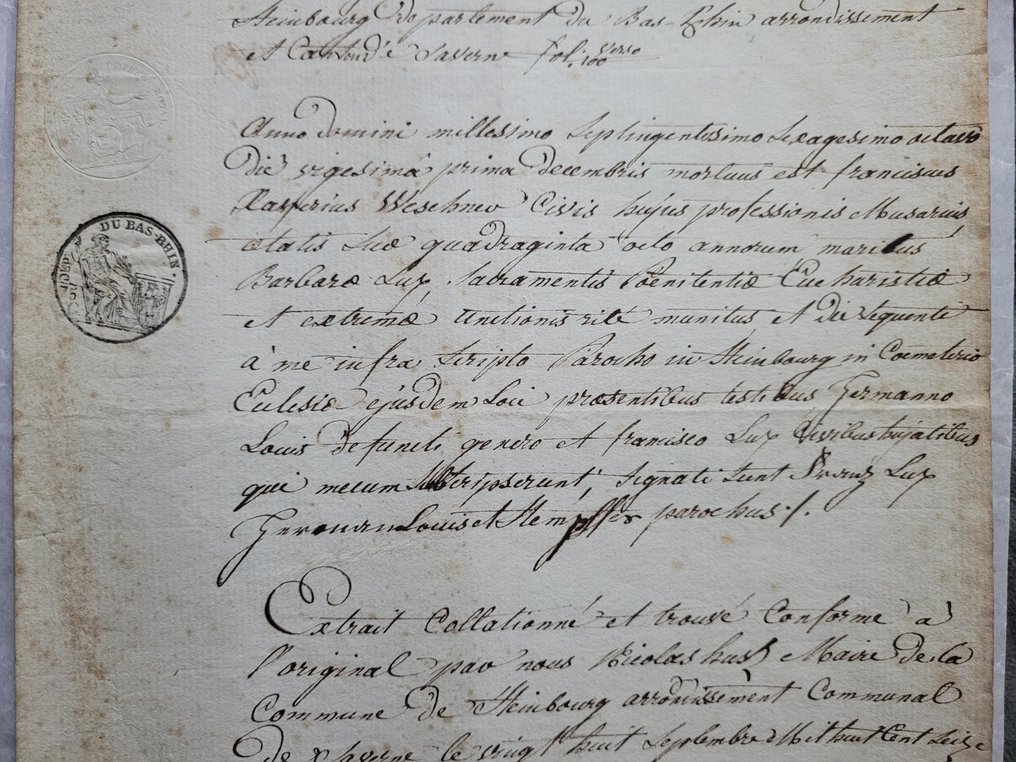 Steinbourg departement du Bas Rhin arrondissement
et Canton de Saverne fol, 100 verso
DU BAS-RHIN.
Anno domini millesimo Septingentissimo Sexagesimo octavo
die vigesimâ prima decembris mortuus est franciscus
Xaverius Weschnev Civis hujus professionis Musarius
ætatis Suæ quadraginta octo annorum maritus
Barbaræ Lux, Sacramentis Pœnitentiæ Eucharistiæ
et extremæ Unctionis rite munitus et die sequenti
à me infra Scripto Parocho in Steinbourg in Cœmeterio
Eclesiæ ejusdem Loci præsentibus testibus Germanno
Louis defuncti genero et francisco Lux Civibus hujatibus
qui mecum Subscripserunt, Signati Sunt Franz Lux
German Louis et Stempffer parochus ./.
Extrait Collationné et trouvé Conforme à
l'original par nous Nicolas huss Maire de la
Commune de Steinbourg arrondissement Communal
De Saverne le vingt huit Septembre Mil huit Cent Seize